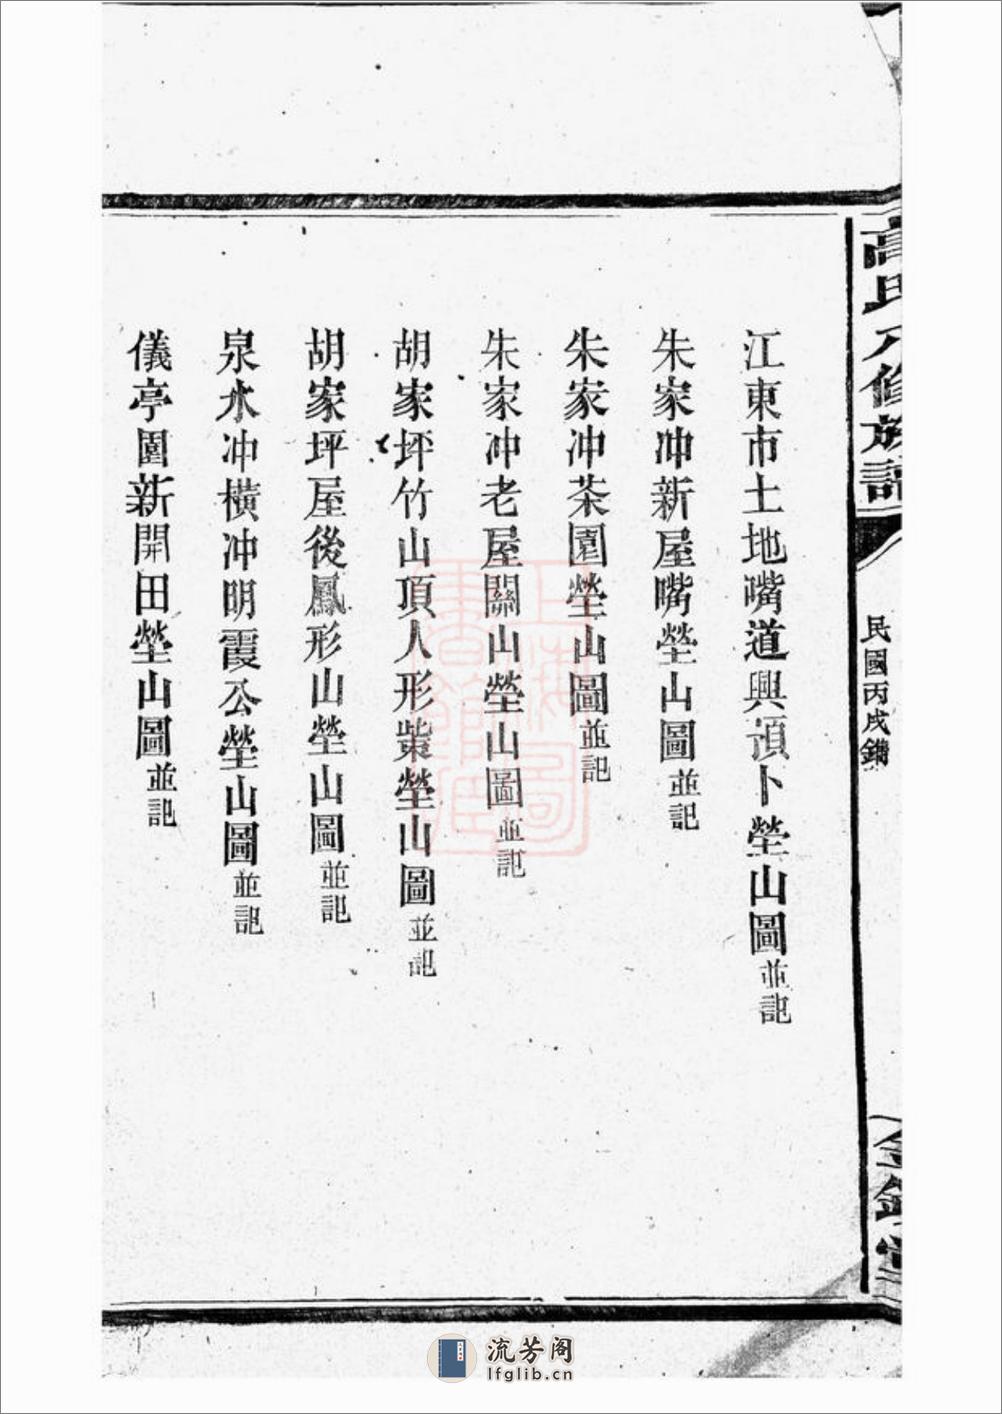 高氏八修族譜
民國丙戌鐫
江東市土地嘴道興預卜塋山圖並記
朱家冲新屋嘴塋山圖並記
朱家冲茶園塋山圖並記
朱家冲老屋關山塋山圖並記
胡家坪竹山頂人形柴塋山圖並記
胡家坪屋後鳳形山塋山圖並記
泉水冲橫冲明霞公塋山圖並記
儀亭園新開田塋山圖並記
上海圖書館藏
流芳阁
lfglib.cn